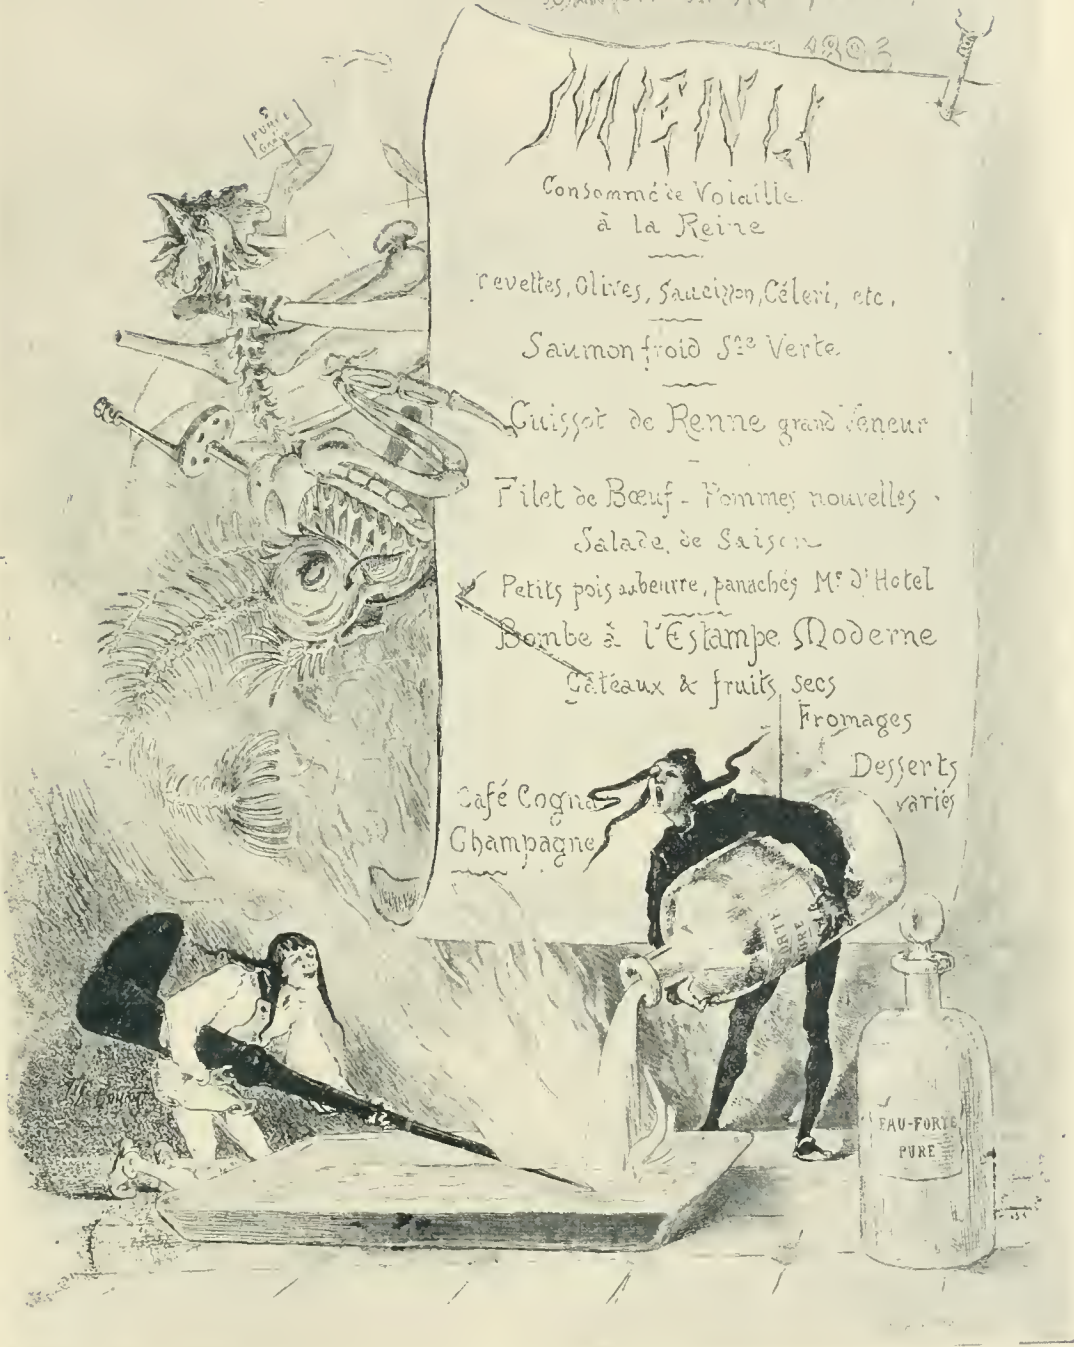 1893
MENU
Consommé de Volaille
à la Reine
revettes, Olives, Saucisson, Céleri, etc.
Saumon froid Sce Verte
Cuissot de Renne grand Veneur
Filet de Bœuf - Pommes nouvelles
Salade de Saison
Petits pois au beurre, panachés Me d'Hotel
Bombe à l'Estampe Moderne
Gâteaux & fruits secs
Fromages
Desserts
variés
Café Cogna
Champagne
EAU-FORTE
PURE